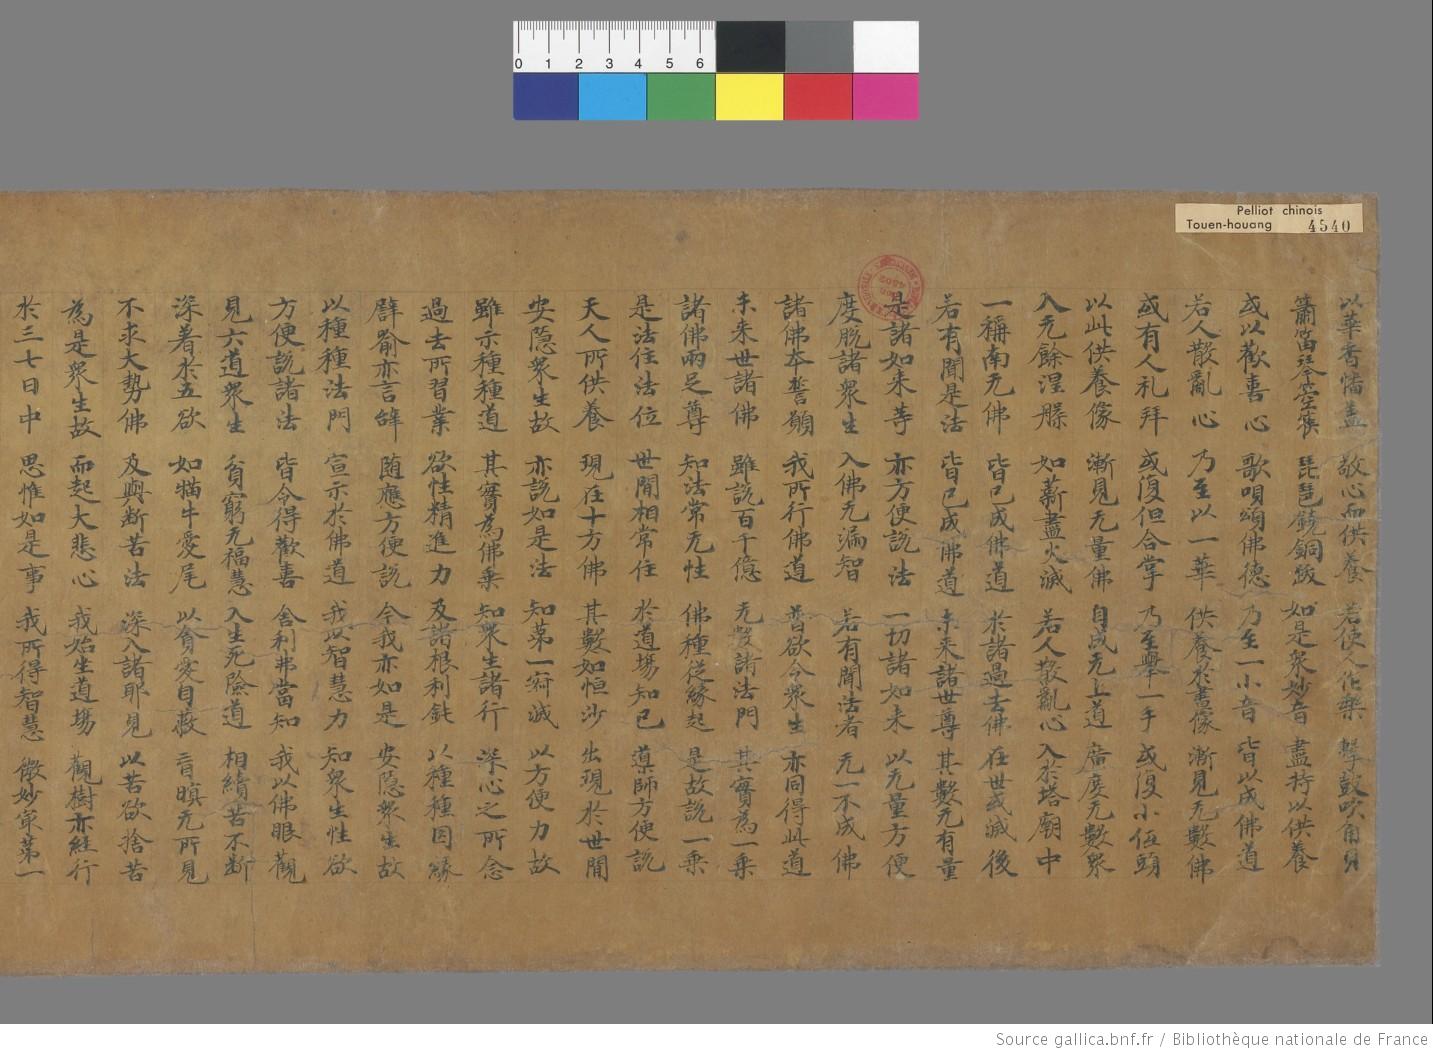 0 1 2 3 4 5 6
Pelliot chinois
Touen-houang 4540
以華香幡盖 敬心而供養 若使人作樂 擊鼓吹角貝
簫笛琴箜篌 琵琶鐃銅鈸 如是衆妙音 盡持以供養
或以歡喜心 歌唄頌佛德 乃至一小音 皆以成佛道
若人散亂心 乃至以一華 供養於畫像 漸見无數佛
或有人礼拜 或復但合掌 乃至舉一手 或復小伍頭
以此供養像 漸見无量佛 自成无上道 廣度无數衆
入无餘涅槃 如薪盡火滅 若人散亂心 入於塔廟中
一稱南无佛 皆已成佛道 於諸過去佛 在世或滅後
若有聞是法 皆已成佛道 未来諸世尊 其數无有量
是諸如来等 亦方便説法 一切諸如来 以无量方便
度脱諸衆生 入佛无漏智 若有聞法者 无一不成佛
諸佛本誓願 我所行佛道 普欲令衆生 亦同得此道
未来世諸佛 雖説百千億 无數諸法門 其實為一乗
諸佛兩足尊 知法常无性 佛種從緣起 是故説一乗
是法住法位 世閒相常住 於道場知已 導師方便説
天人所供養 現在十方佛 其數如恒沙 出現於世閒
安隱衆生故 亦説如是法 知第一寂滅 以方便力故
雖示種種道 其實為佛乗 知衆生諸行 深心之所念
過去所習業 欲性精進力 及諸根利鈍 以種種因緣
辟喻亦言辭 随應方便説 今我亦如是 安隱衆生故
以種種法門 宣示於佛道 我以智慧力 知衆生性欲
方便説諸法 皆令得歡喜 舍利弗當知 我以佛眼觀
見六道衆生 貧窮无福慧 入生死險道 相續苦不斷
深著於五欲 如猫牛愛尾 以貪愛自蔽 盲瞑无所見
不求大勢佛 及與断苦法 深入諸耶見 以苦欲捨苦
為是衆生故 而起大悲心 我始坐道場 觀樹亦経行
於三七日中 思惟如是事 我所得智慧 微妙最第一
Source gallica.bnf.fr / Bibliothèque nationale de France